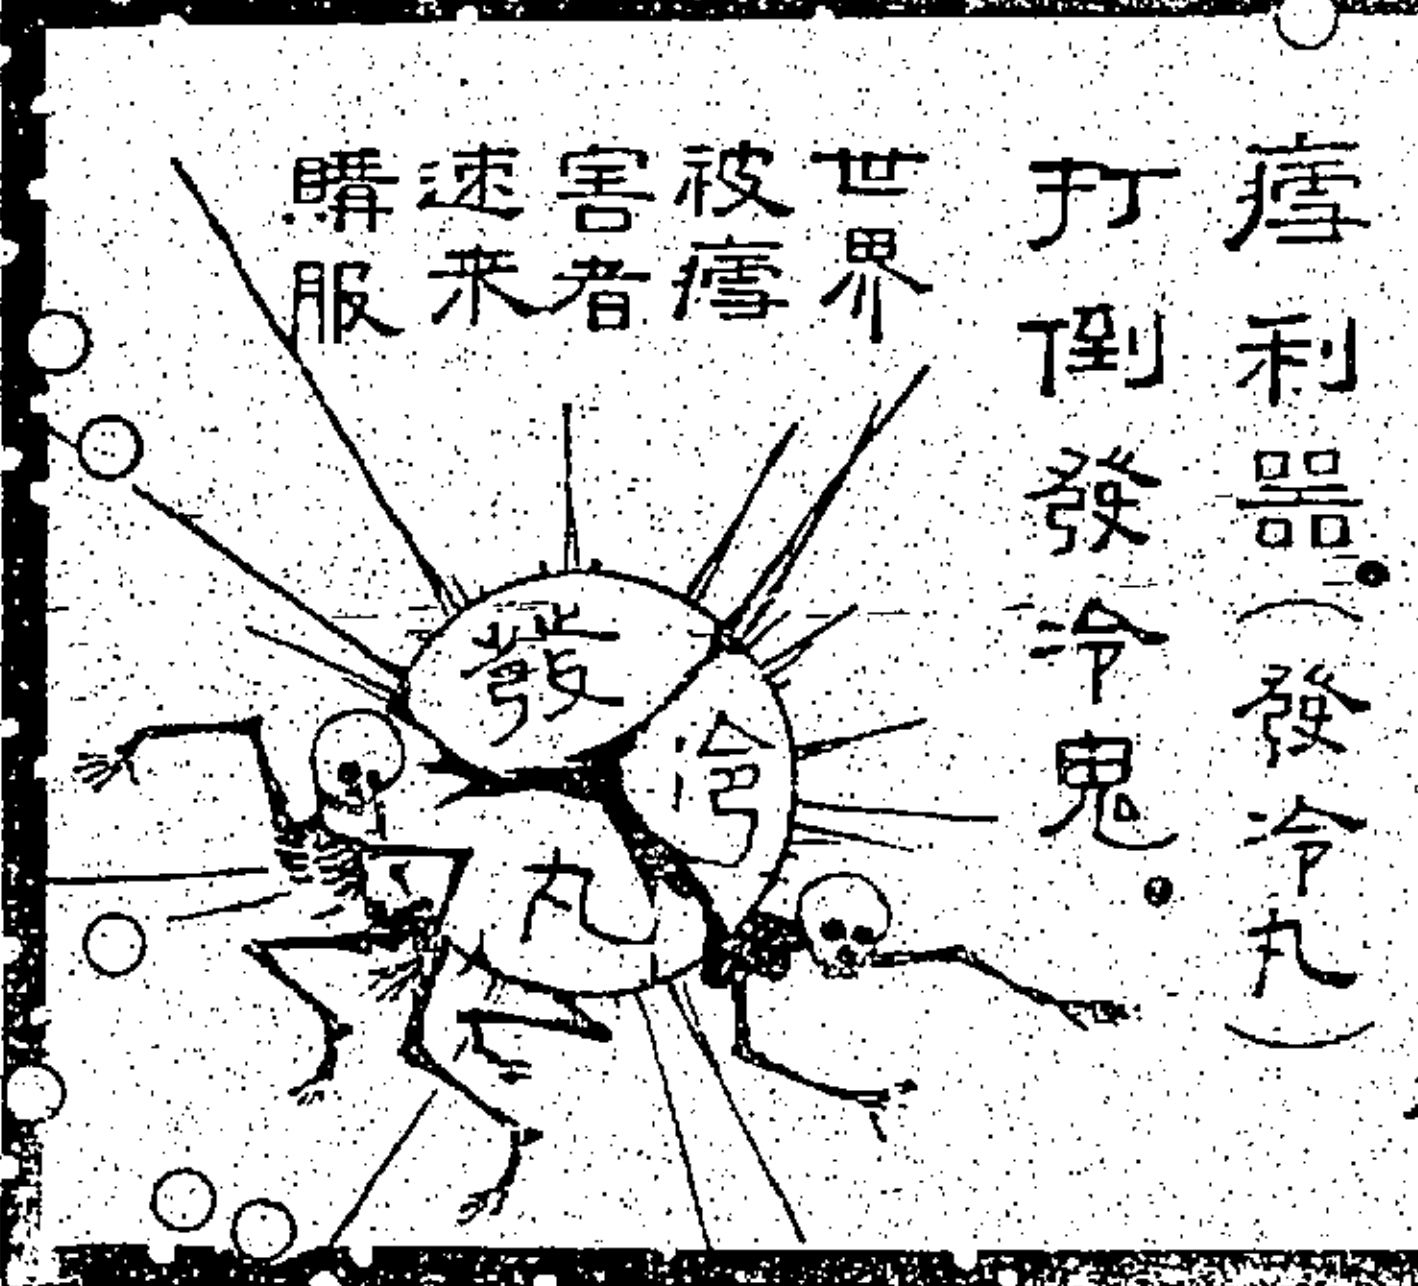 瘧利器（發冷丸）
打倒發冷鬼
世界
被瘧
害者
速来
購服
發
冷
丸